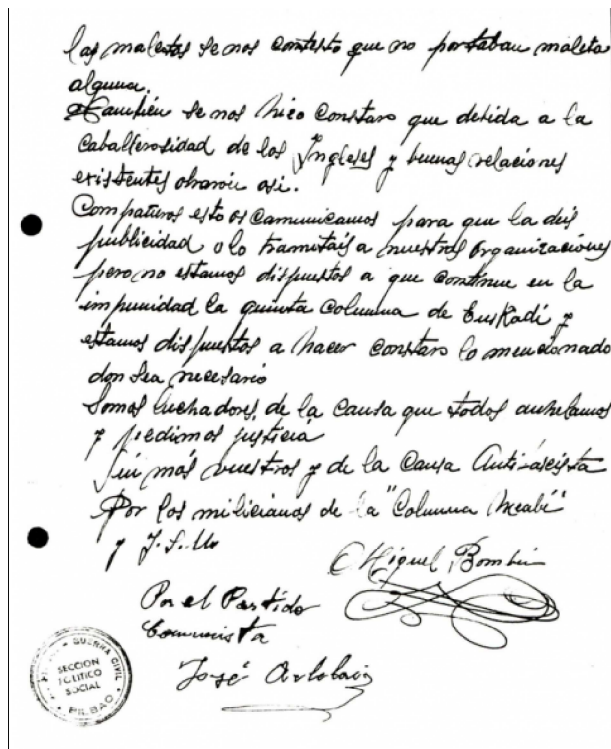 las maletas se nos contesto que no portaban maleta
alguna.
También se nos hizo constar que debida a la
Caballerosidad de los Ingleses y buenas relaciones
existentes obraron asi.
Compañeros esto os comunicamos para que la deis
publicidad o lo tramitais a nuestras organizaciones
pero no estamos dispuestos a que continue en la
impunidad la quinta columna de Euskadi y
estamos dispuestos a hacer constar lo mencionado
don sea necesario
Somos luchadores de la causa que todos anhelamos
y pedimos justicia
Sin más vuestros y de la Causa Antifascista
Por los milicianos de la "Columna
y J. S. U.
Miguel Bombin
Por el Partido
Comunista
José
GUERRA CIVIL
SECCION
POLITICO
SOCIAL
BILBAO